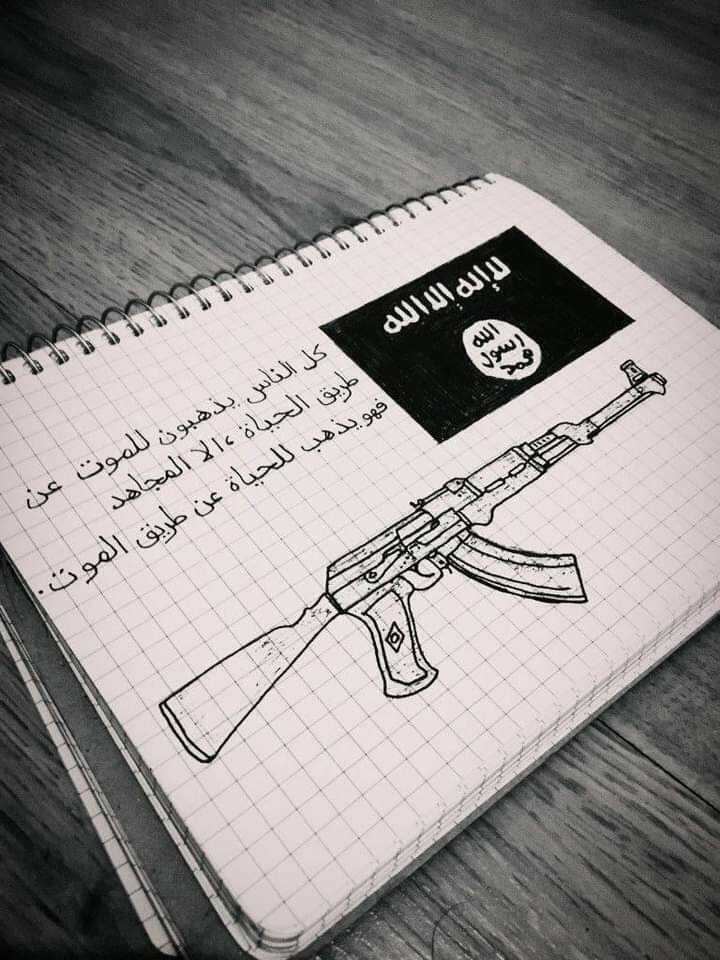 لا إله إلا الله
الله
رسول
محمد
كل الناس يذهبون للموت عن
طريق الحياة ، الا المجاهد
فهو يذهب للحياة عن طريق الموت.